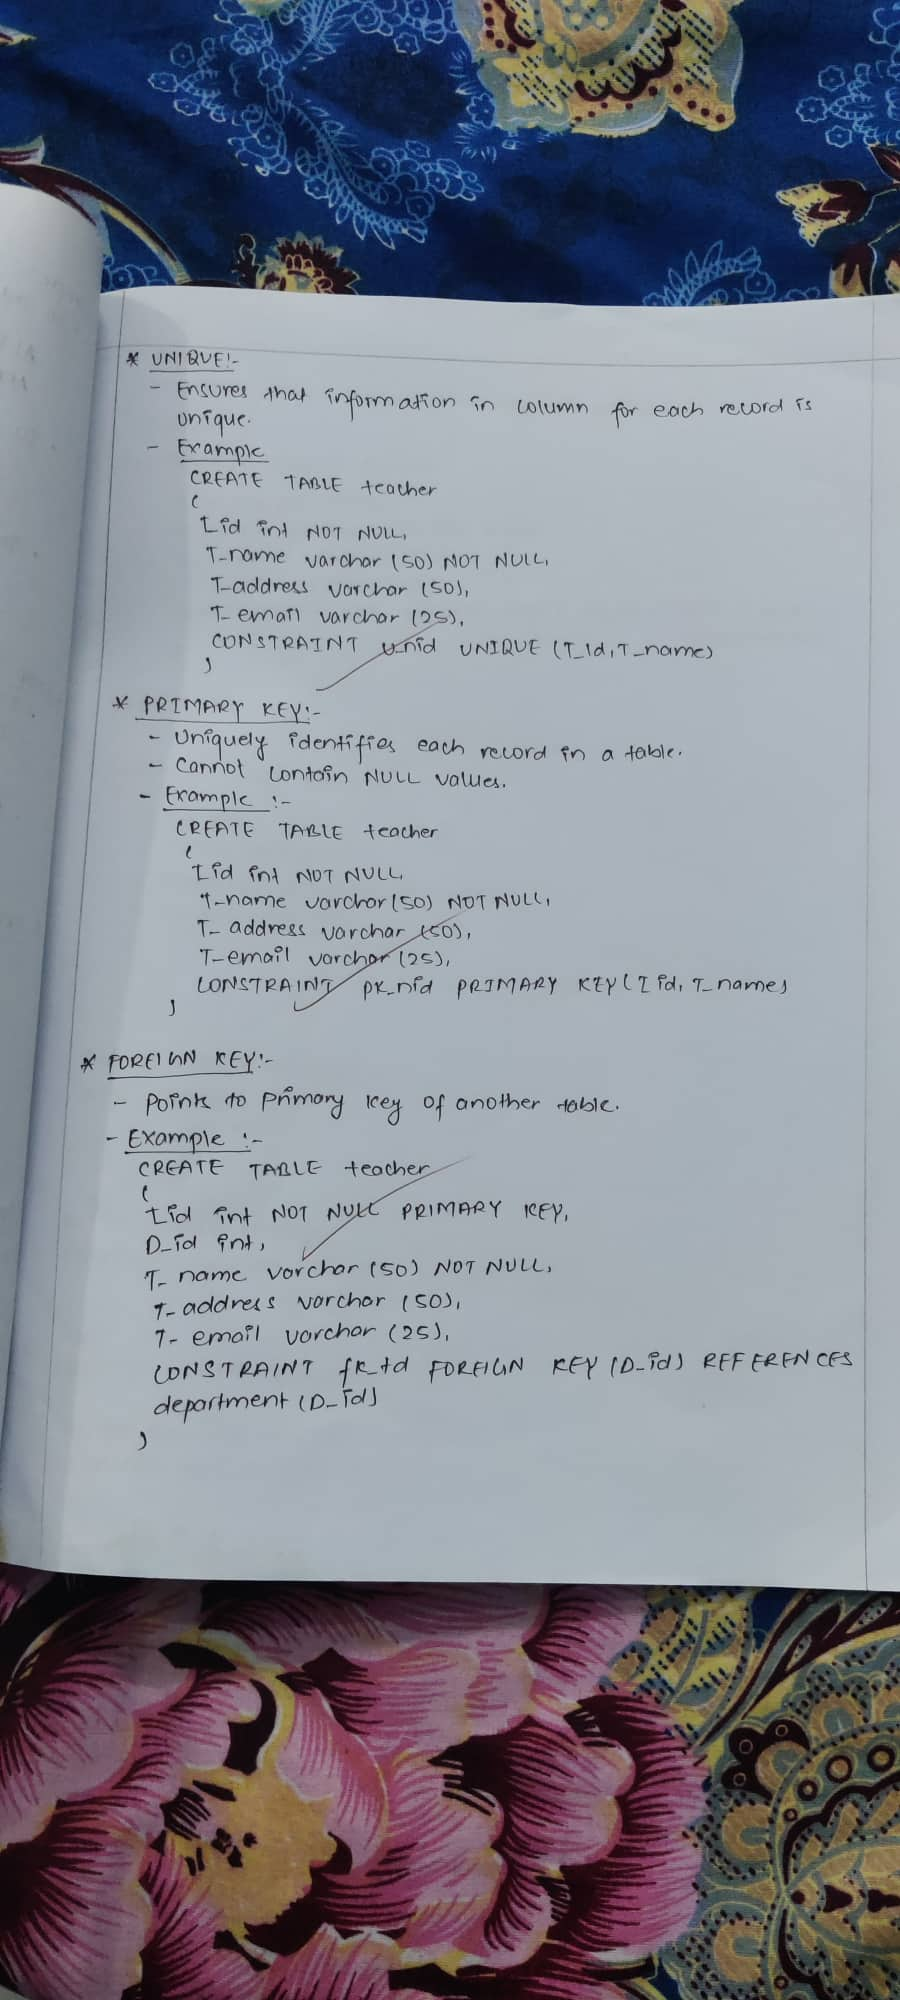 * UNIQUE:-
- Ensures that information in column for each record is
unique.
- Example
CREATE TABLE teacher
(
T_id int NOT NULL,
T_name varchar (50) NOT NULL,
T_address varchar (50),
T_email varchar (25),
CONSTRAINT u_nid UNIQUE (T_id, T_name)
)
* PRIMARY KEY:-
- Uniquely identifies each record in a table.
- Cannot contain NULL values.
- Example :-
CREATE TABLE teacher
(
T_id int NOT NULL,
T_name varchar (50) NOT NULL,
T_address varchar (50),
T_email varchar (25),
CONSTRAINT pk_nid PRIMARY KEY (T_id, T_name)
)
* FOREIGN KEY:-
- Points to primary key of another table.
- Example :-
CREATE TABLE teacher
(
T_id int NOT NULL PRIMARY KEY,
D_id int,
T_name varchar (50) NOT NULL,
T_address varchar (50),
T_email varchar (25),
CONSTRAINT fk_td FOREIGN KEY (D_id) REFERENCES
department (D_id)
)